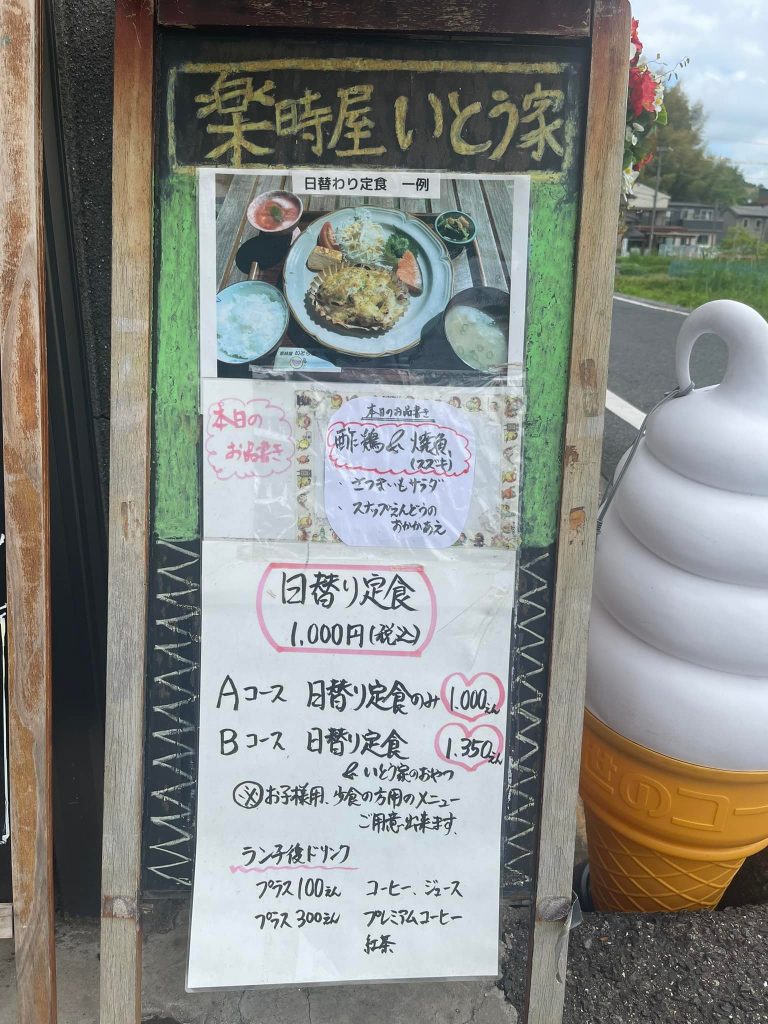 楽時屋 いとう家
日替わり定食 一例
本日の
お品書き
本日のお品書き
酢鶏& 焼魚
(スズキ)
・さつまいもサラダ
・スナップえんどうの
おかかあえ
日替り定食
1,000円(税込)
Aコース 日替り定食のみ 1.000えん
Bコース 日替り定食 1.350えん
& いとう家のおやつ
※お子様用、少食の方用のメニュー
ご用意出来ます。
ランチ後ドリンク
プラス100えん コーヒー、ジュース
プラス300えん プレミアムコーヒー
紅茶
世のコー